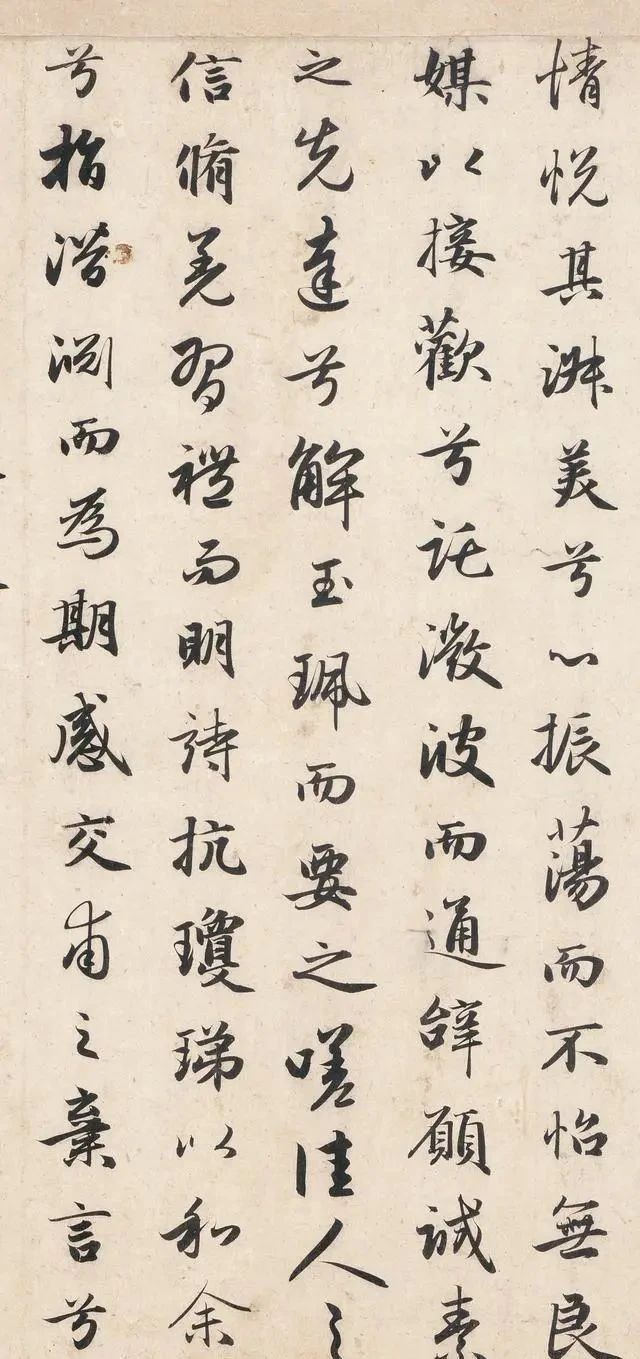 情悅其淑美兮心振蕩而不怡無良
媒以接歡兮託溦波而通辭願誠素
之先達兮解玉珮而要之嗟佳人之
信脩羌習禮而明詩抗瓊珶以和余
兮指潛淵而為期感交甫之棄言兮